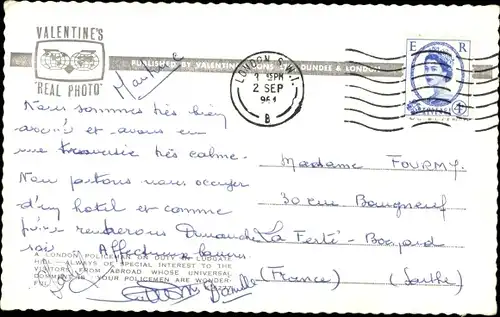 VALENTINE'S
"REAL PHOTO"
PUBLISHED BY VALENTINE & SONS LTD DUNDEE & LONDON
LONDON S.W.1
3 15PM
2 SEP
1961
B
E R
POSTAGE
Nous sommes très bien
et avons eu
une traversée très calme.
Nous partons nous occuper
d'un hotel et comme
rentrerons Dimanche
soir. Affectueux baisers
Madame FOURMY.
30 rue Bourgneuf
La Ferté-Bernard
(France) (Sarthe)
A LONDON POLICEMAN ON DUTY IN LUDGATE
HILL. ALWAYS OF SPECIAL INTEREST TO THE
VISITORS FROM ABROAD WHOSE UNIVERSAL
COMMENT IS "YOUR POLICEMEN ARE WONDER-
FUL"